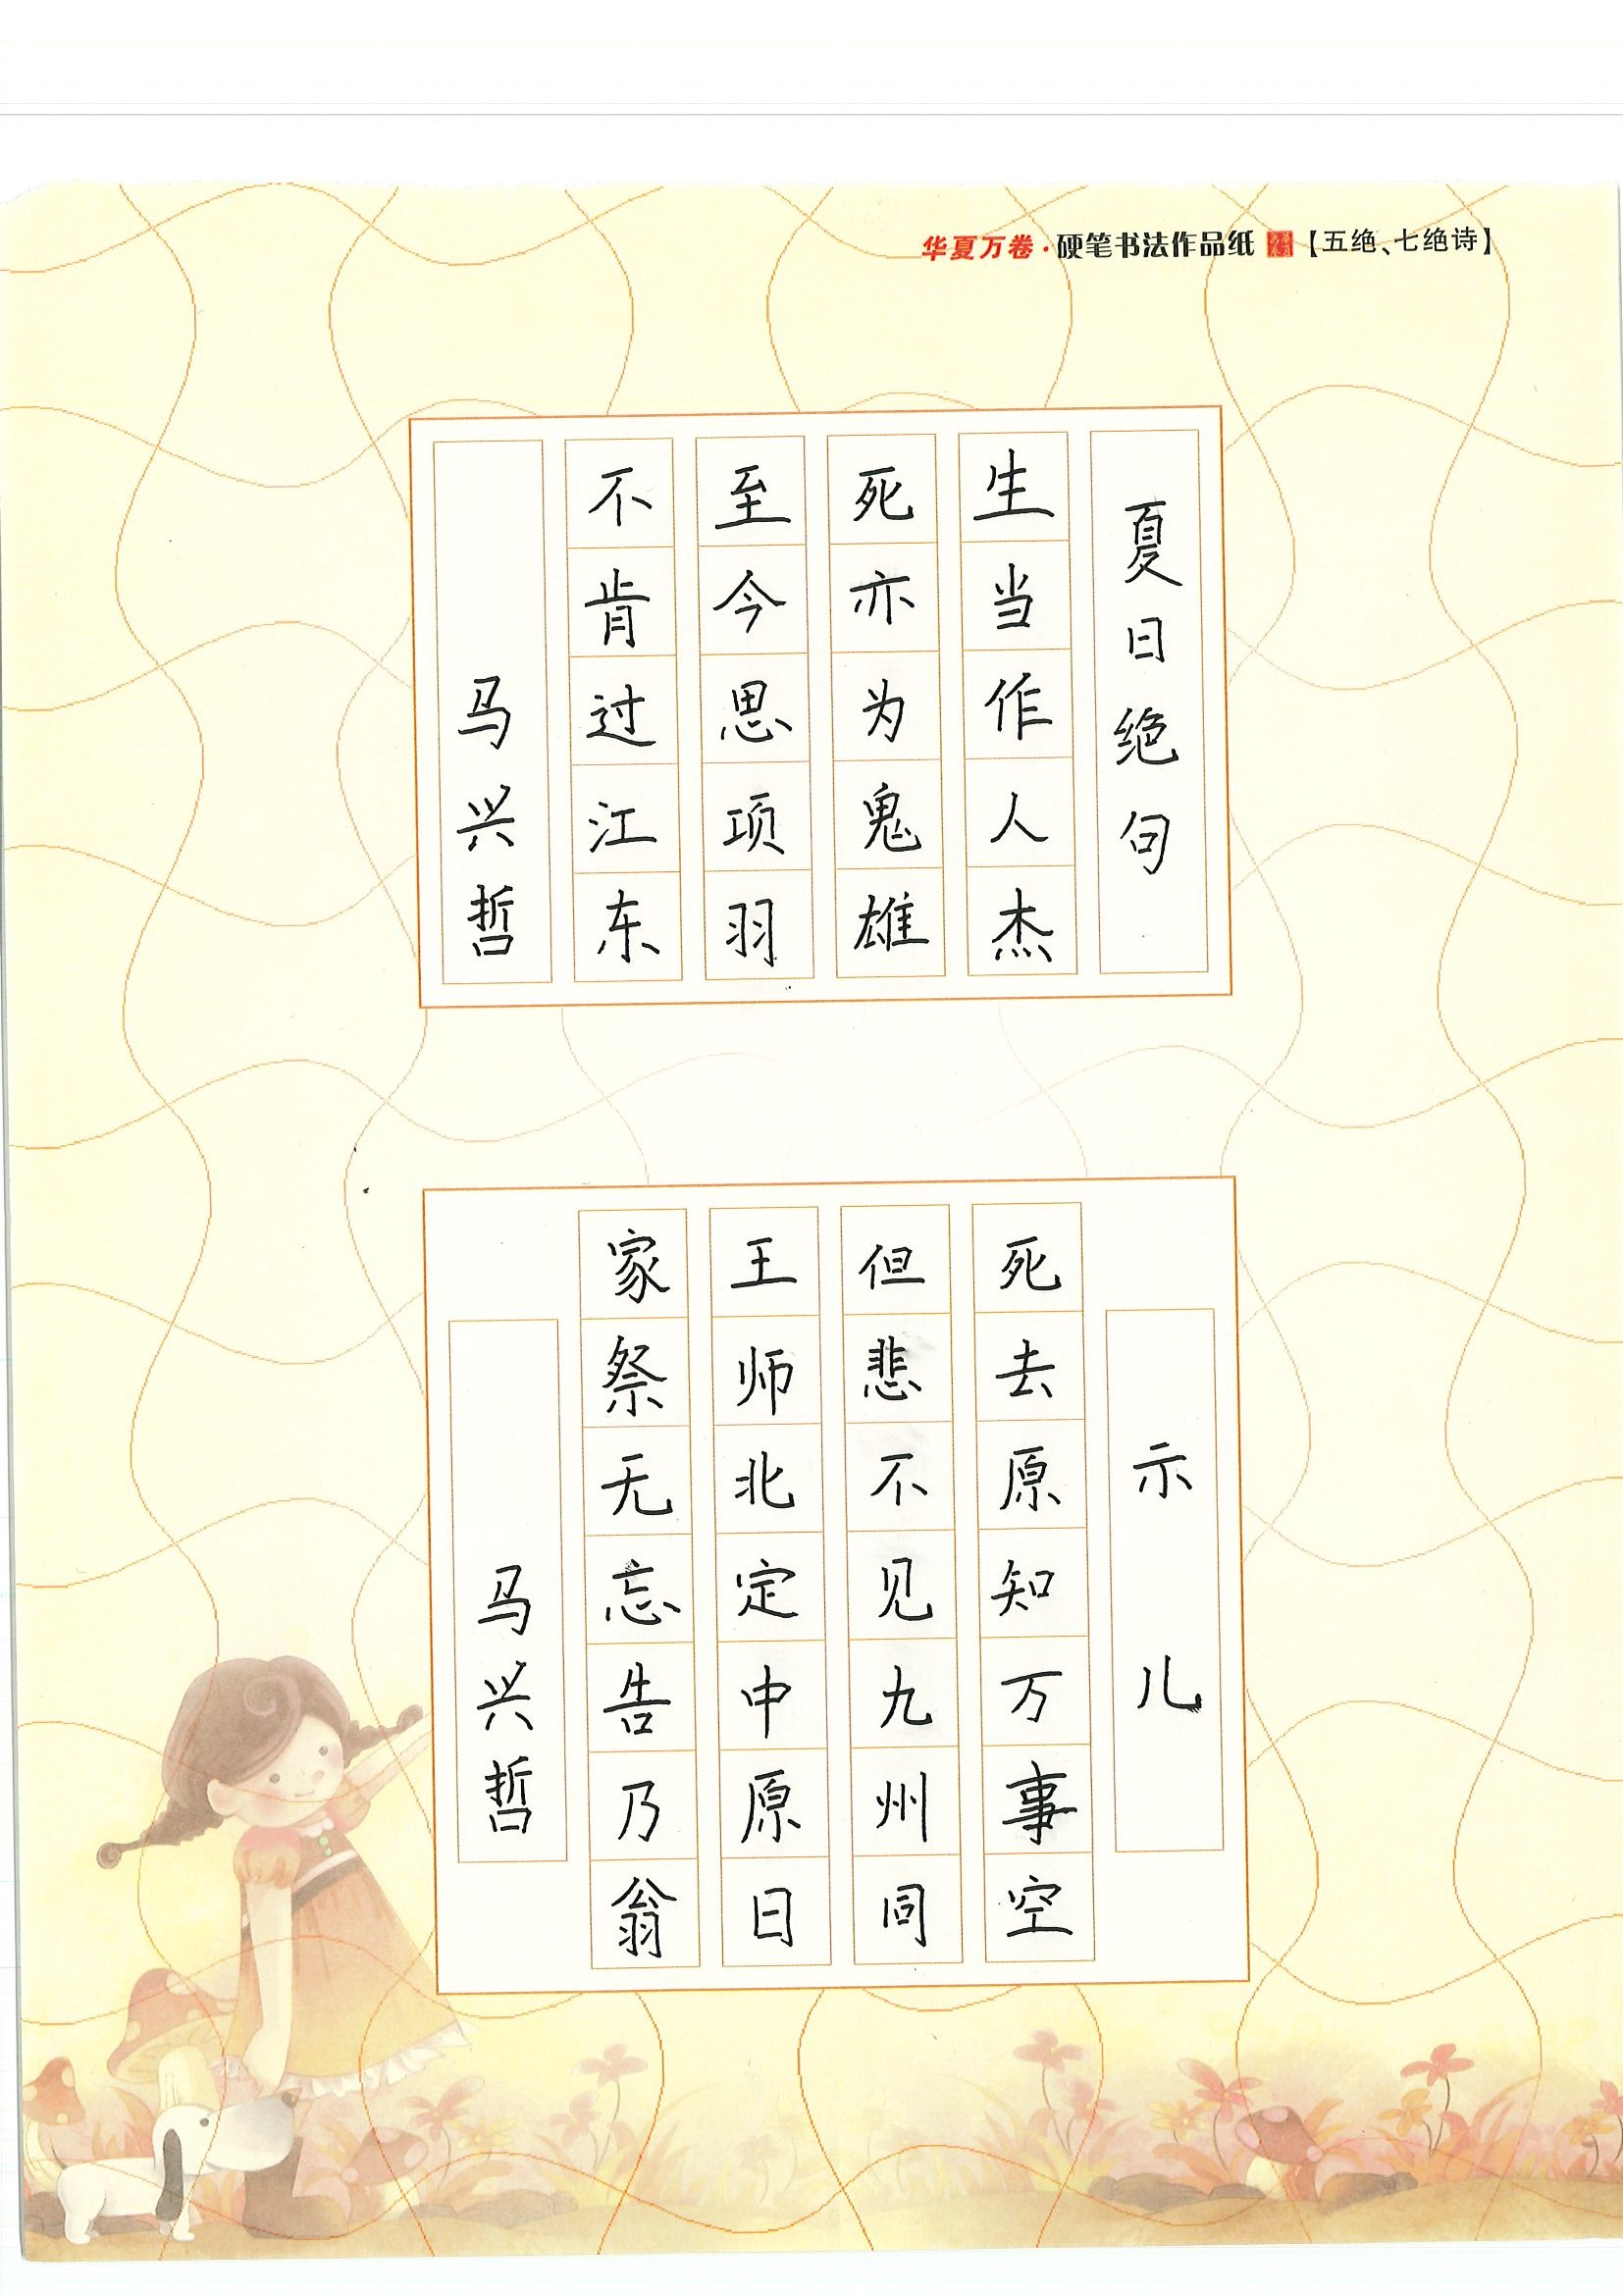 华夏万卷·硬笔书法作品纸【五绝、七绝诗】
夏日绝句
生当作人杰
死亦为鬼雄
至今思项羽
不肯过江东
马兴哲
示儿
死去原知万事空
但悲不见九州同
王师北定中原日
家祭无忘告乃翁
马兴哲